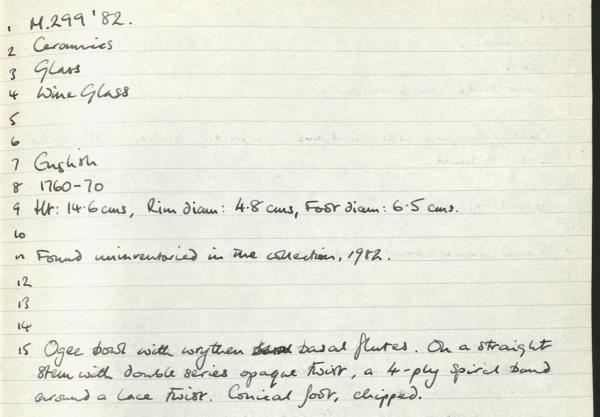 1 M.299 '82.
2 Ceramics
3 Glass
4 Wine Glass
5
6
7 English
8 1760-70
9 Ht: 14.6 cms, Rim diam: 4.8 cms, Foot diam: 6.5 cms.
10
11 Found uninventoried in the collection, 1982.
12
13
14
15 Ogee bowl with wrythen basal flutes. On a straight
stem with double series opaque twist, a 4-ply spiral band
around a lace twist. Conical foot, chipped.